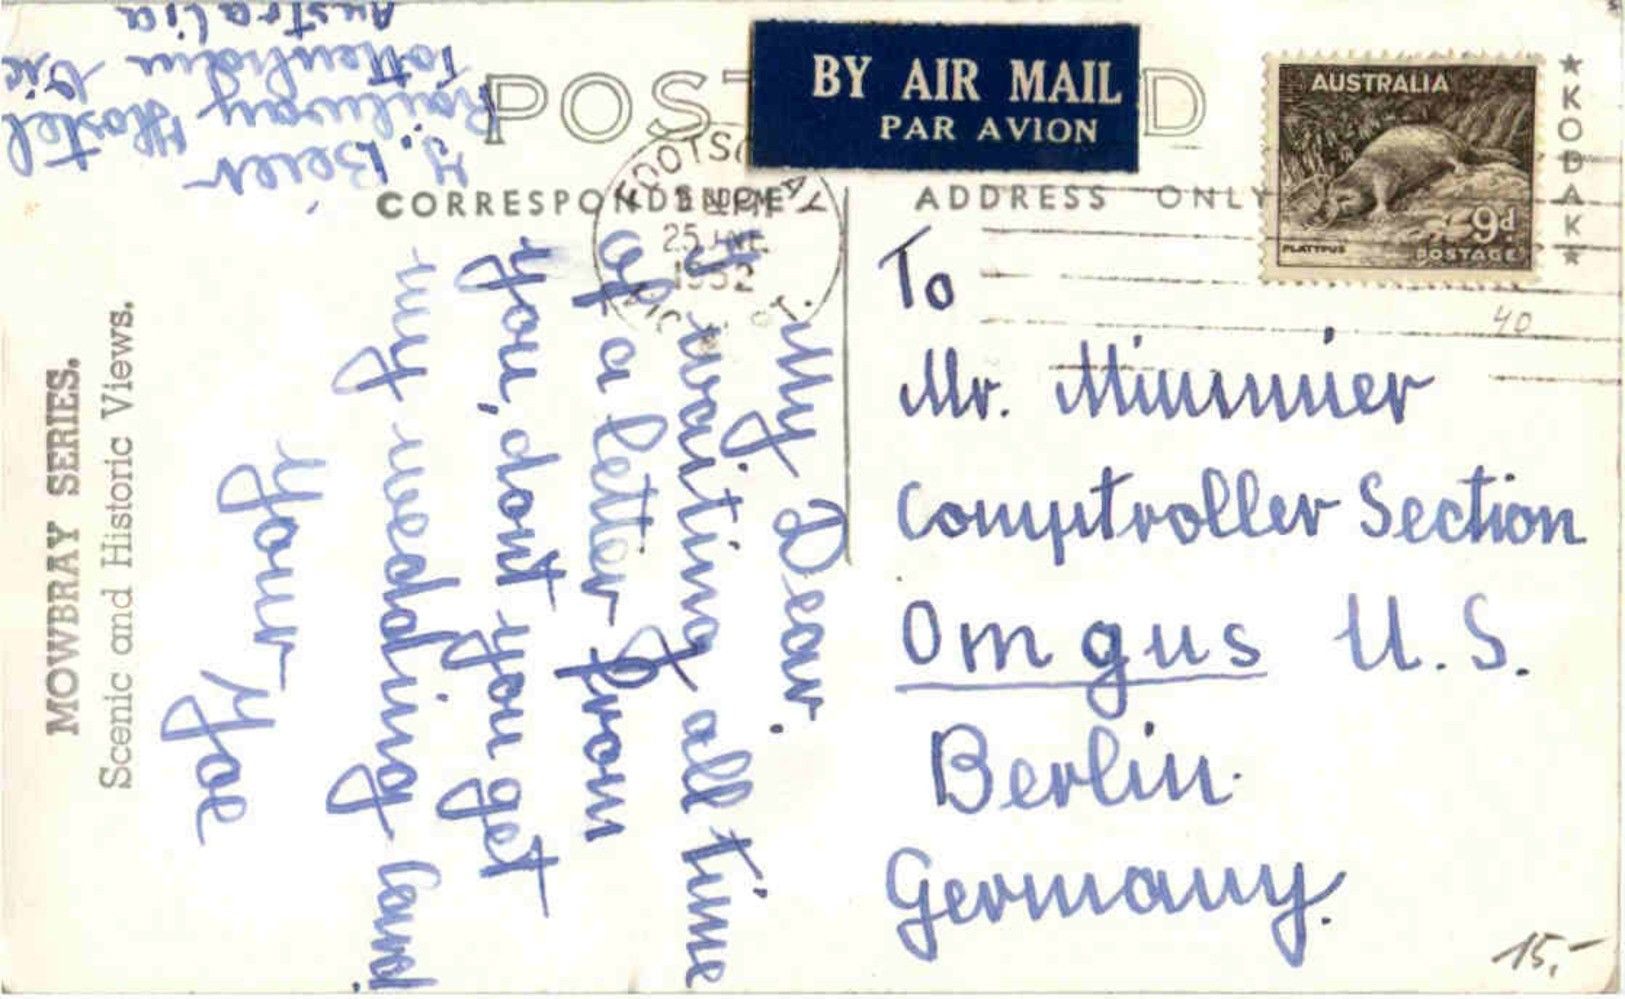 POST D
BY AIR MAIL
PAR AVION
CORRESPONDENCE
ADDRESS ONLY
AUSTRALIA
PLATYPUS
9d
POSTAGE
★KODAK★
FOOTSCRAY
25 JNE
1952
VIC
MOWBRAY SERIES.
Scenic and Historic Views.
Y. Beier
Railway Hostel
Tottenham Vic
Australia
My Dear.
I waiting all time
of a letter from
you, dont you get
my wedding card
your Yoe
To
Mr. Miummier
Comptroller Section
Omgus U.S.
Berlin.
Germany.
40
15,-